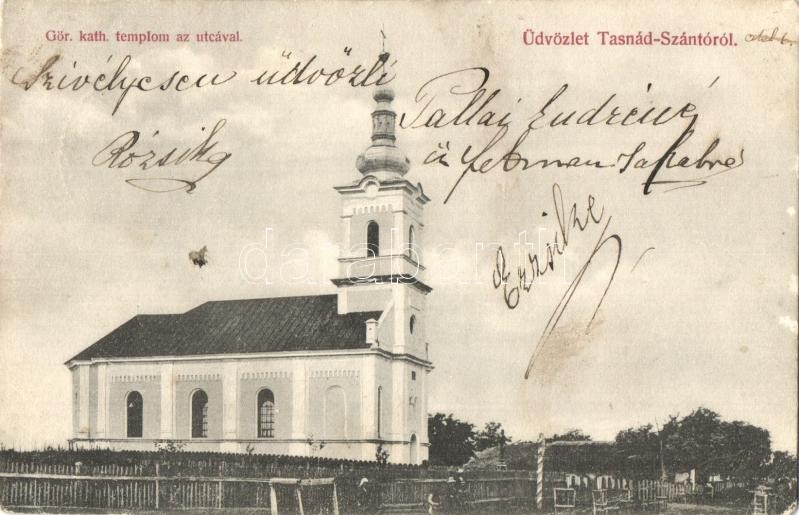 Gör. kath. templom az utcával.
Üdvözlet Tasnád-Szántóról.
Szivélyesen üdvözli
Rózsika
Pallai Endréné
ü
Jakabné
Erzsike
darabanth.com